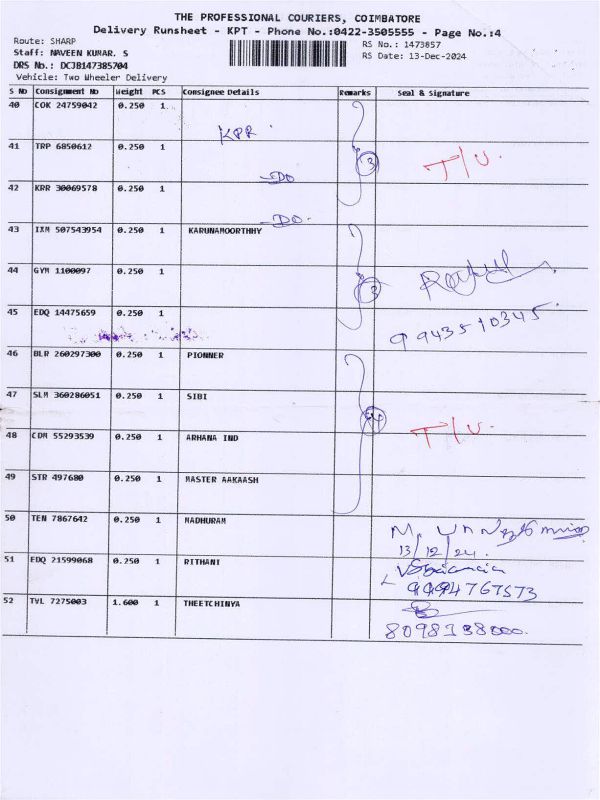 THE PROFESSIONAL COURIERS, COIMBATORE
Delivery Runsheet - KPT - Phone No.:0422-3505555 - Page No.:4
Route: SHARP
RS No.: 1473857
Staff: NAVEEN KUMAR. S
RS Date: 13-Dec-2024
DRS No.: DCJB147385704
Vehicle: Two Wheeler Delivery
S No Consignment No Weight PCS Consignee Details Remarks Seal & Signature
40 COK 24759042 0.250 1
KPR
41 TRP 6850612 0.250 1
3 T/U.
DO
42 KRR 30069578 0.250 1
DO.
43 IXM 507543954 0.250 1 KARUNAMOORTHHY
44 GYM 1100097 0.250 1
3
45 EDQ 14475659 0.250 1
9943510345
46 BLR 260297300 0.250 1 PIONNER
47 SLM 360286051 0.250 1 SIBI
4 T/U.
48 CDM 55293539 0.250 1 ARHANA IND
49 STR 497680 0.250 1 MASTER AAKAASH
50 TEN 7867642 0.250 1 MADHURAM
13/12/24.
51 EDQ 21599068 0.250 1 RITHANI
9994767573
52 TVL 7275003 1.600 1 THEETCHINYA
8098138000.